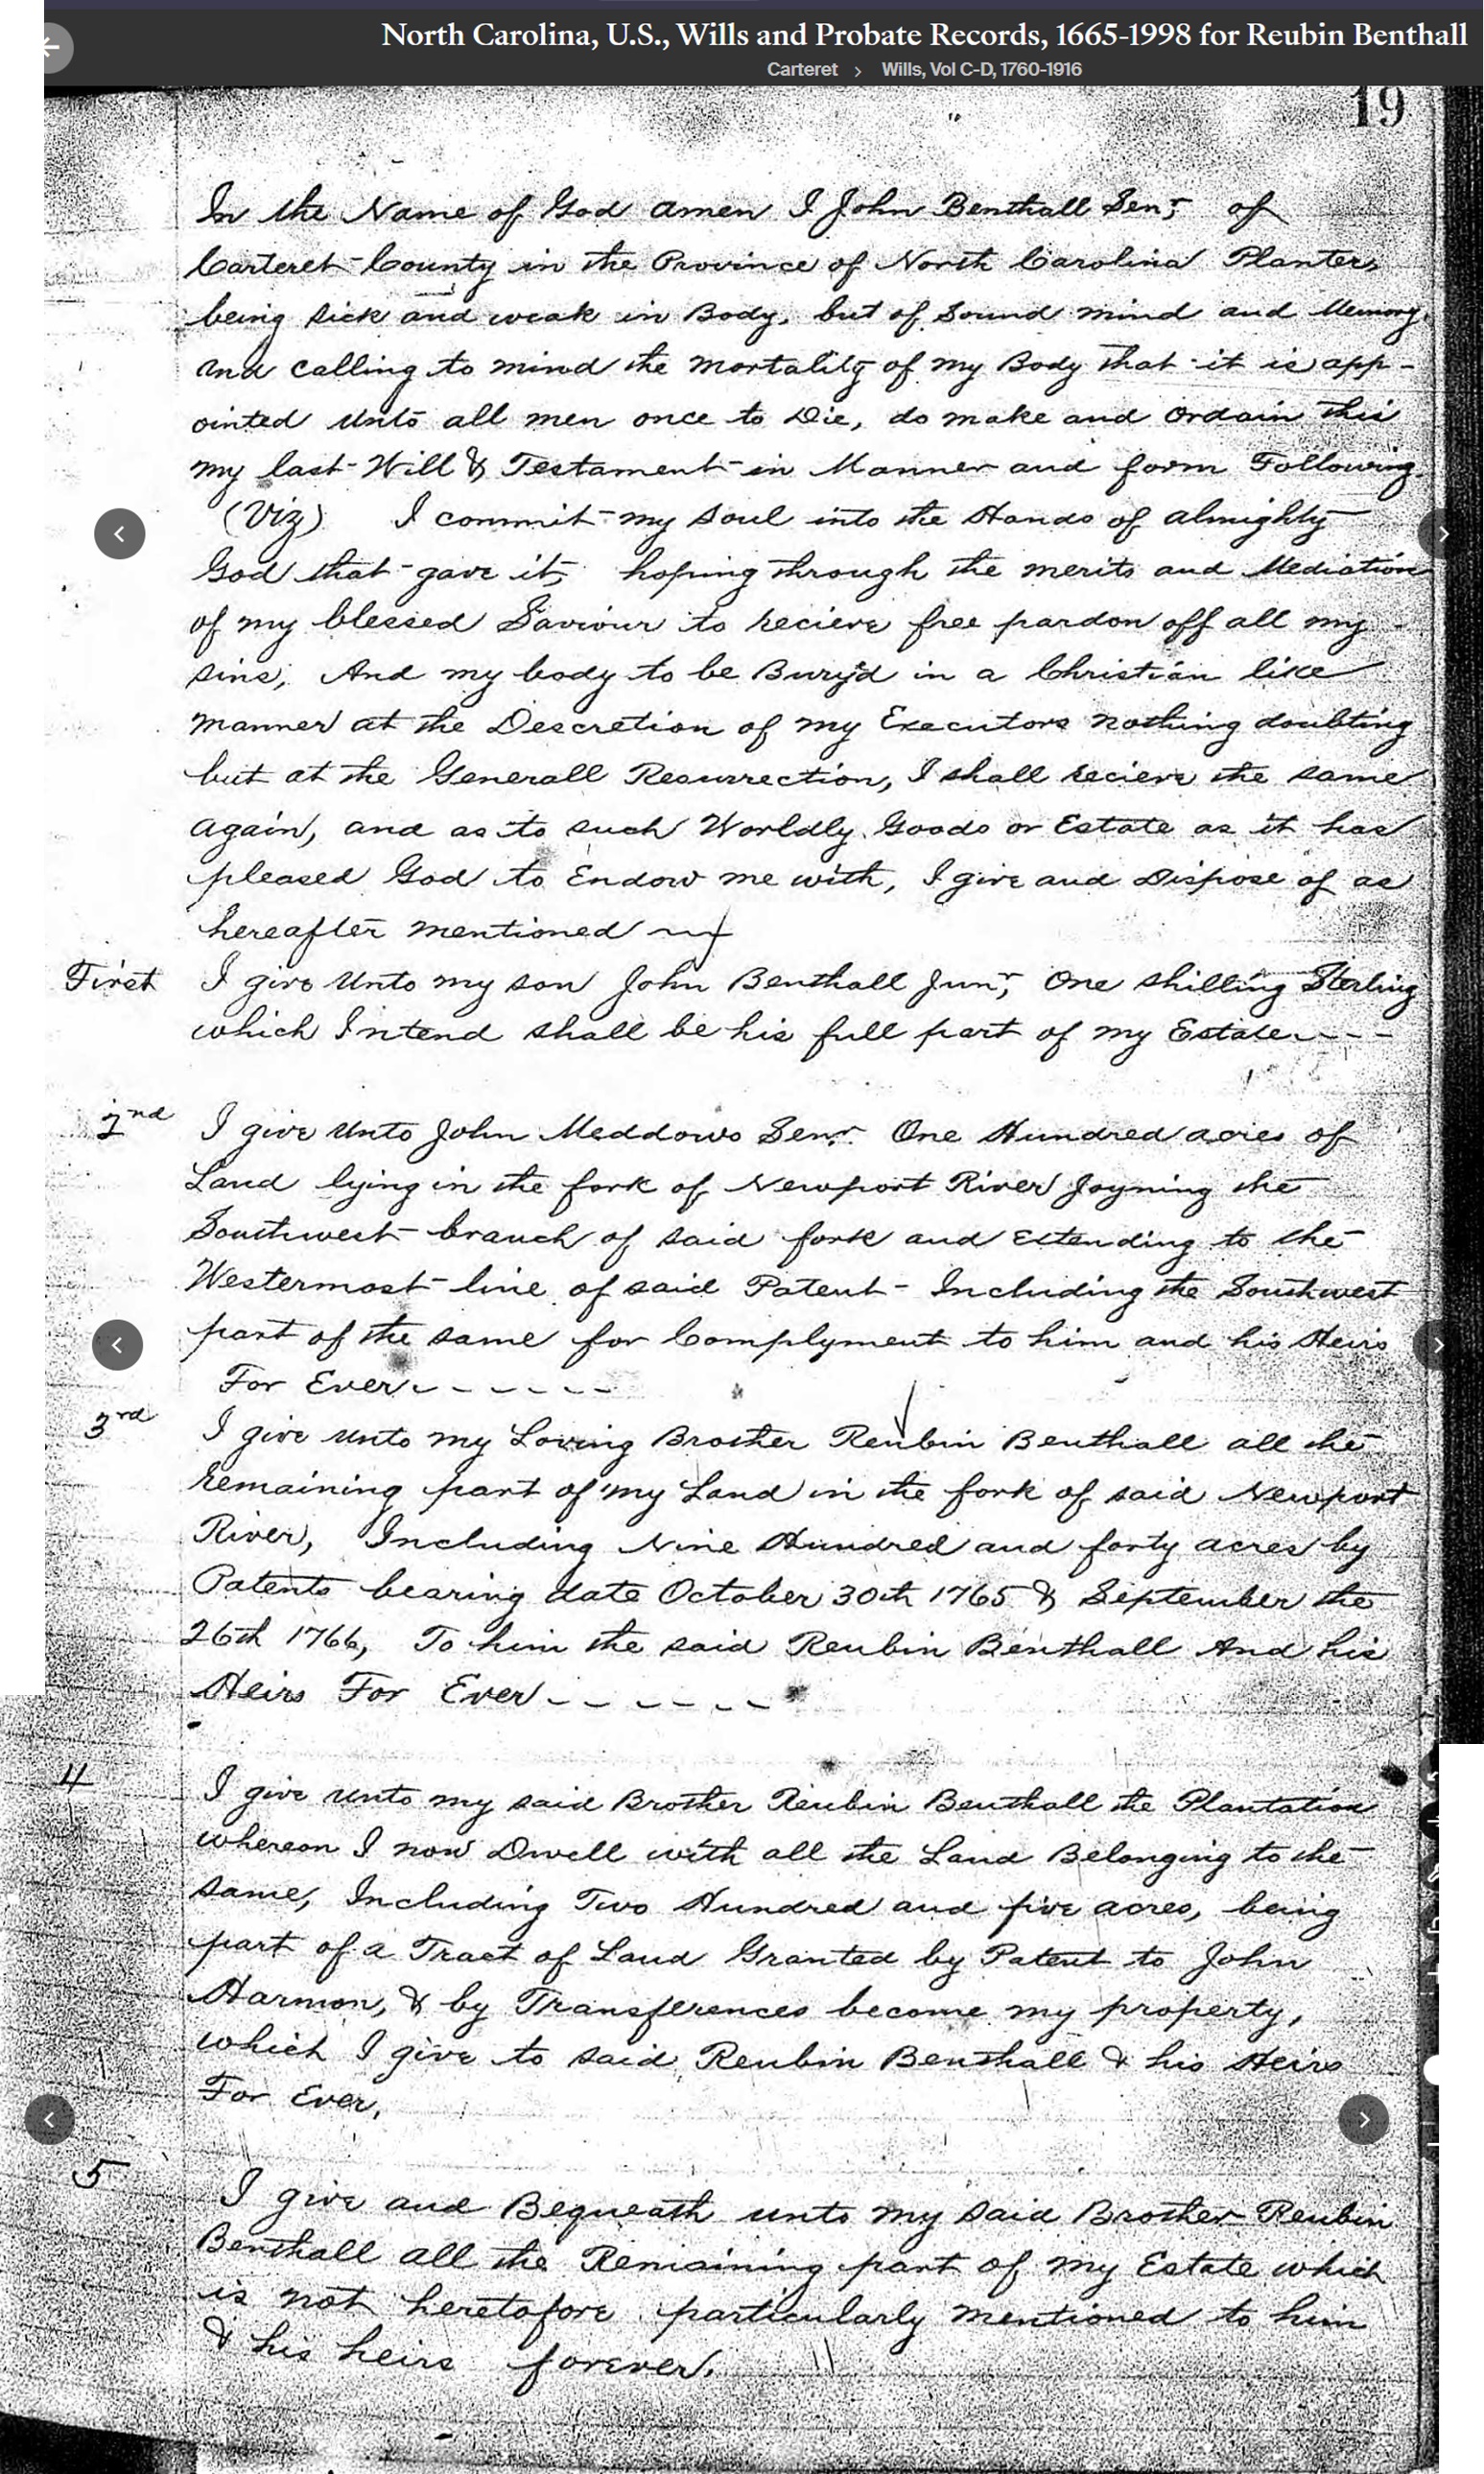 North Carolina, U.S., Wills and Probate Records, 1665-1998 for Reubin Benthall
Carteret > Wills, Vol C-D, 1760-1916
19
In the Name of God Amen I John Benthall Senr of
Carteret County in the Province of North Carolina Planter,
being sick and weak in Body, but of Sound mind and Memory,
And calling to mind the mortality of my Body that it is app-
ointed Unto all men once to Die, do make and Ordain this
my last Will & Testament in Manner and form Following
(Viz) I commit my Soul into the Hands of almighty
God that gave it, hoping through the merits and Mediation
of my blessed Saviour to recieve free pardon off all my
sins, And my body to be Bury'd in a Christian like
manner at the Descretion of my Executors nothing doubting
but at the Generall Resurrection, I shall recieve the same
again, and as to such Worldly Goods or Estate as it has
pleased God to Endow me with, I give and Dispose of as
hereafter mentioned
First I give Unto my son John Benthall Junr, One shilling Sterling
which Intend shall be his full part of my Estate ---
2nd I give Unto John Meddows Senr. One Hundred acres of
Land lying in the fork of Newport River Joyning the
Southwest branch of said fork and Extending to the
Westermost line of said Patent - Including the Southwest
part of the same for Complyment to him and his Heirs
For Ever ------
3rd I give Unto my Loving Brother Reubin Benthall all the
remaining part of my Land in the fork of said Newport
River, Including Nine Hundred and forty acres by
Patents bearing date October 30th 1765 & September the
26th 1766, To him the said Reubin Benthall And his
Heirs For Ever ------
4 I give Unto my said Brother Reubin Benthall the Plantation
whereon I now Dwell with all the Land Belonging to the
same, Including Two Hundred and five acres, being
part of a Tract of Land Granted by Patent to John
Harmon, & by Transferences become my property,
which I give to said Reubin Benthall & his Heirs
For Ever,
5 I give and Bequeath unto my said Brother Reubin
Benthall all the Remaining part of my Estate which
is not heretofore particularly mentioned to him
& his heirs forever.